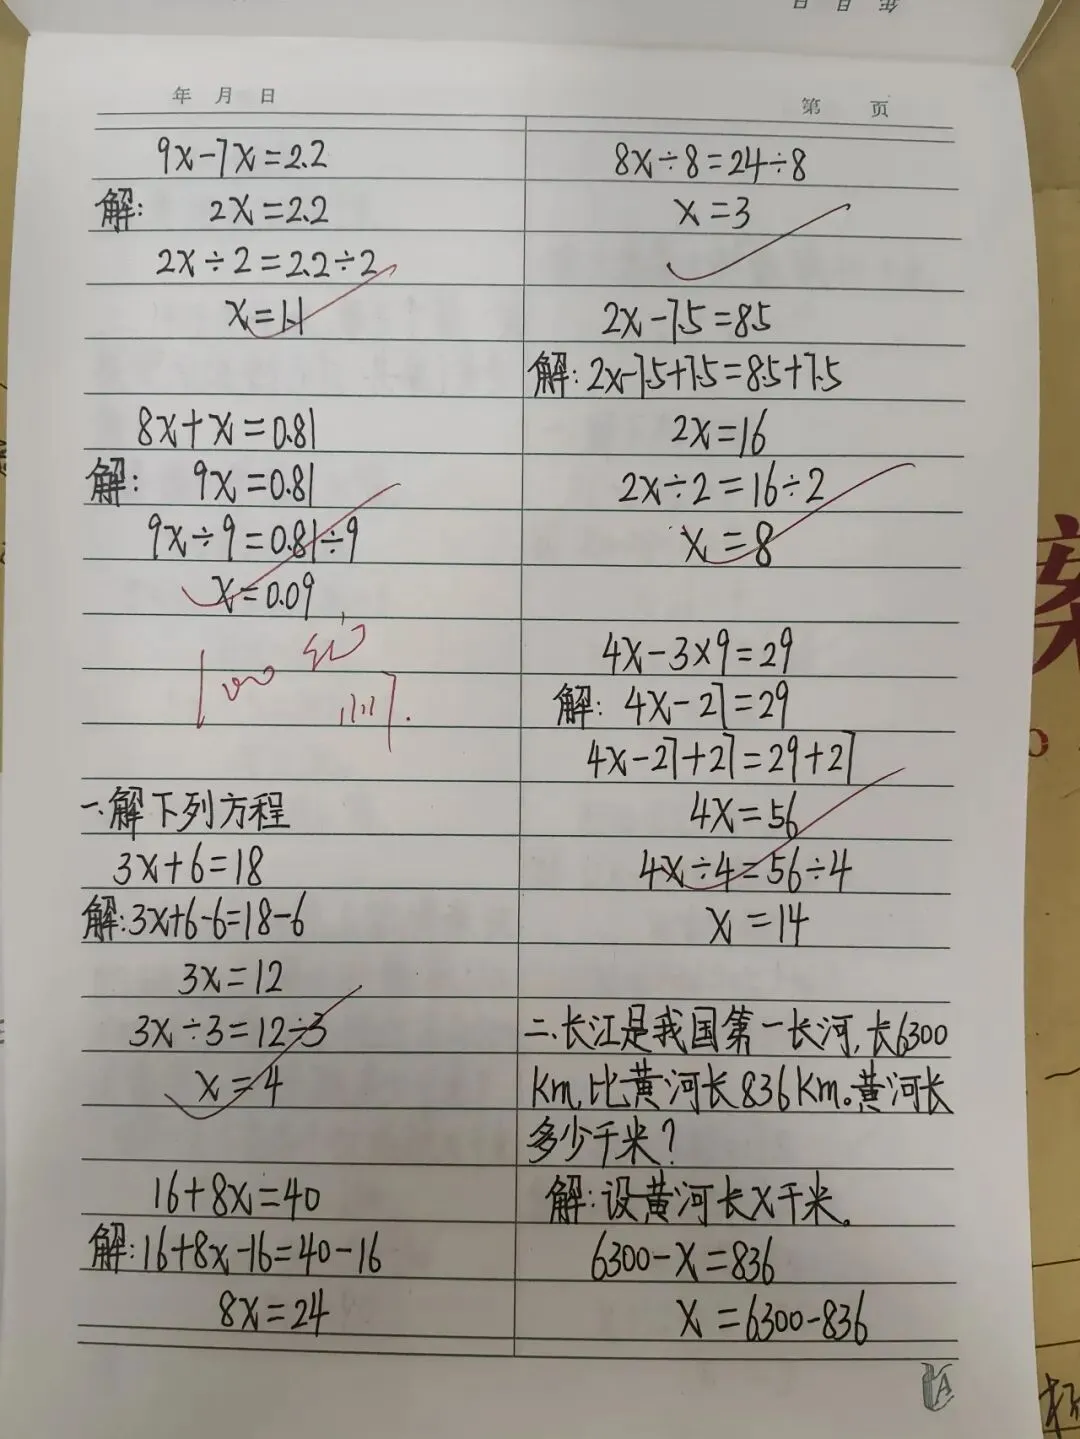 年 月 日
年 月 日
第 页
9x-7x=2.2
解: 2x=2.2
2x÷2=2.2÷2
x=1.1
8x+x=0.81
解: 9x=0.81
9x÷9=0.81÷9
x=0.09
100
一、解下列方程
3x+6=18
解:3x+6-6=18-6
3x=12
3x÷3=12÷3
x=4
16+8x=40
解:16+8x-16=40-16
8x=24
8x÷8=24÷8
x=3
2x-7.5=8.5
解:2x-7.5+7.5=8.5+7.5
2x=16
2x÷2=16÷2
x=8
4x-3×9=29
解: 4x-27=29
4x-27+27=29+27
4x=56
4x÷4=56÷4
x=14
二、长江是我国第一长河,长6300
Km,比黄河长836Km。黄河长
多少千米?
解:设黄河长x千米。
6300-x=836
x=6300-836
A
案